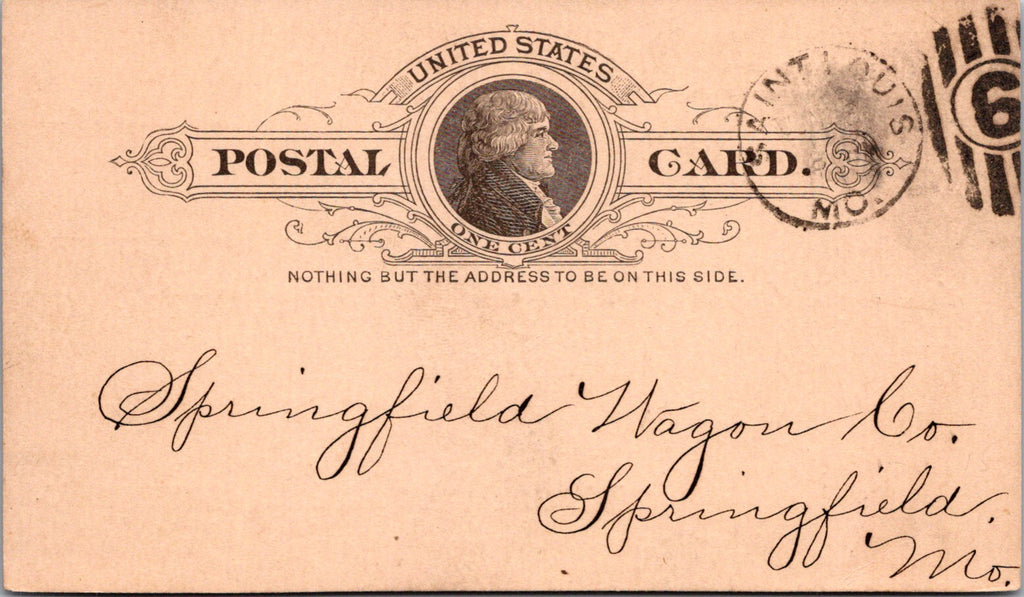 UNITED STATES
POSTAL CARD.
ONE CENT
NOTHING BUT THE ADDRESS TO BE ON THIS SIDE.
SAINT LOUIS
MO.
6
Springfield Wagon Co.
Springfield.
Mo.